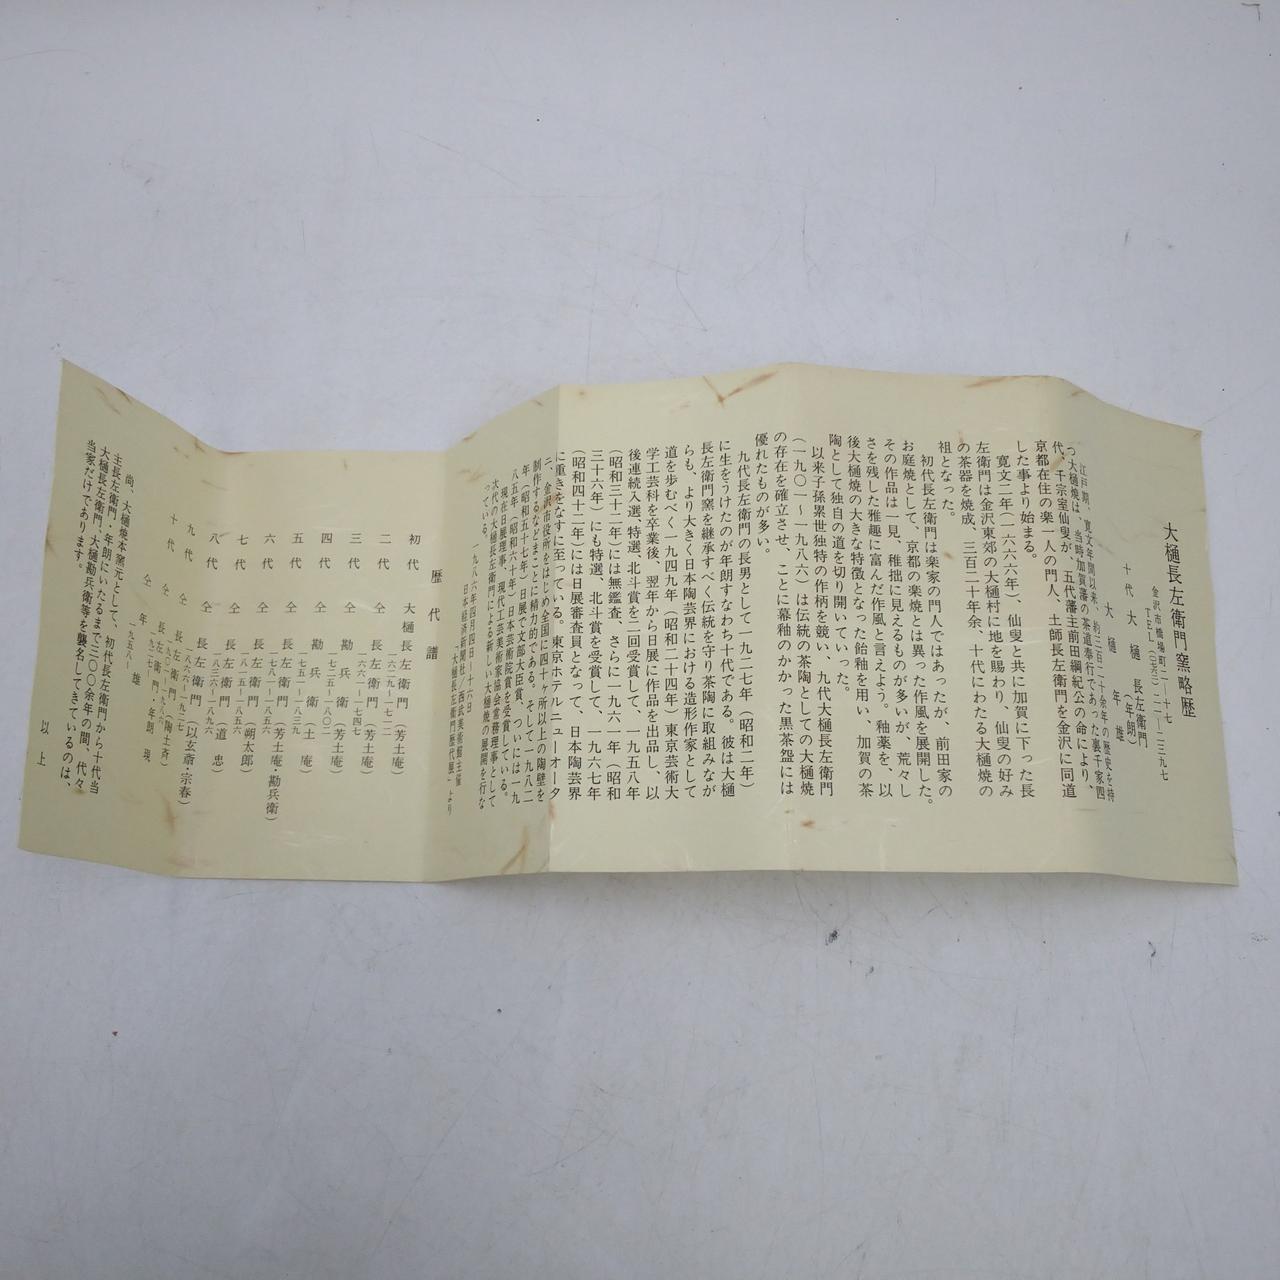 大樋長左衛門窯略歴
金沢市橋場町二―十七
TEL(〇七六二)二一―二三九七
十代 大樋 長左衛門
(年朗)
大樋 年雄
江戸期、寛文年間以来、約三百二十余年の歴史を持
つ大樋焼は、当時加賀藩の茶道奉行であった裏千家四
代、千宗室仙叟が、五代藩主前田綱紀公の命により、
京都在住の楽一入の門人、土師長左衛門を金沢に同道
した事より始まる。
寛文二年(一六六六年)、仙叟と共に加賀に下った長
左衛門は金沢東郊の大樋村に地を賜わり、仙叟の好み
の茶器を焼成、三百二十年余、十代にわたる大樋焼の
祖となった。
初代長左衛門は楽家の門人ではあったが、前田家の
お庭焼として、京都の楽焼とは異った作風を展開した。
その作品は一見、稚拙に見えるものが多いが、荒々し
さを残した雅趣に富んだ作風と言えよう。釉薬を、以
後大樋焼の大きな特徴となった飴釉を用い、加賀の茶
陶として独自の道を切り開いていった。
以来子孫累世独特の作柄を競い、九代大樋長左衛門
(一九〇一~一九八六)は伝統の茶陶としての大樋焼
の存在を確立させ、ことに幕釉のかかった黒茶盌には
優れたものが多い。
九代長左衛門の長男として一九二七年(昭和二年)
に生をうけたのが年朗すなわち十代である。彼は大樋
長左衛門窯を継承すべく伝統を守り茶陶に取組みなが
らも、より大きく日本陶芸界における造形作家として
道を歩むべく一九四九年(昭和二十四年)東京芸術大
学工芸科を卒業後、翌年から日展に作品を出品し、以
後連続入選、特選、北斗賞を二回受賞して、一九五八年
(昭和三十三年)には無鑑査、さらに一九六一年(昭和
三十六年)にも特選、北斗賞を受賞して、一九六七年
(昭和四十二年)には日展審査員となって、日本陶芸界
に重きをなすに至っている。東京ホテルニューオータ
ニ、金沢市役所をはじめ全国に四十ヶ所以上の陶壁を
制作するなどまことに精力的である。そして一九八二
年(昭和五十七年)日展で文部大臣賞、ついには一九
八五年(昭和六十年)日本芸術院賞を受賞している。
現在日展理事、現代工芸美術家協会常務理事として
十代の大樋長左衛門による新しい大樋焼の展開を行な
っている。
一九八六年四月四日―十六日
日本経済新聞社/西武美術館主催
「大樋長左衛門歴代展」より
歴代譜
初代 大樋長左衛門(芳土庵)
一六三〇~一七一二
二代 仝 長左衛門(芳土庵)
一六六一~一七四七
三代 仝 勘兵衛(芳土庵)
一七二五~一八〇二
四代 仝 勘兵衛(土庵)
一七五一~一八三九
五代 仝 長左衛門(芳土庵・勘兵衛)
一七八一~一八五六
六代 仝 長左衛門(朔太郎)
一八一五~一八五六
七代 仝 長左衛門(道忠)
一八三六~一八九六
八代 仝 長左衛門(以玄斎・宗春)
一八六六~一九二七
九代 仝 長左衛門(陶土斉)
一九〇一~一九八六
十代 仝 長左衛門・年朗 現
一九二七~
仝 年雄
一九五八~
尚、大樋焼本窯元として、初代長左衛門から十代当
主長左衛門・年朗にいたるまで三〇〇余年の間、代々
大樋長左衛門、大樋勘兵衛等を襲名してきているのは、
当家だけであります。
以上